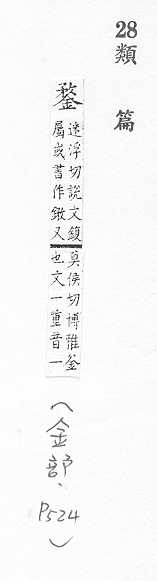 28
類篇
鍪
迷浮切說文鍑
屬或書作又
莫侯切博雅釜
也文一重音一
(金部、P524)